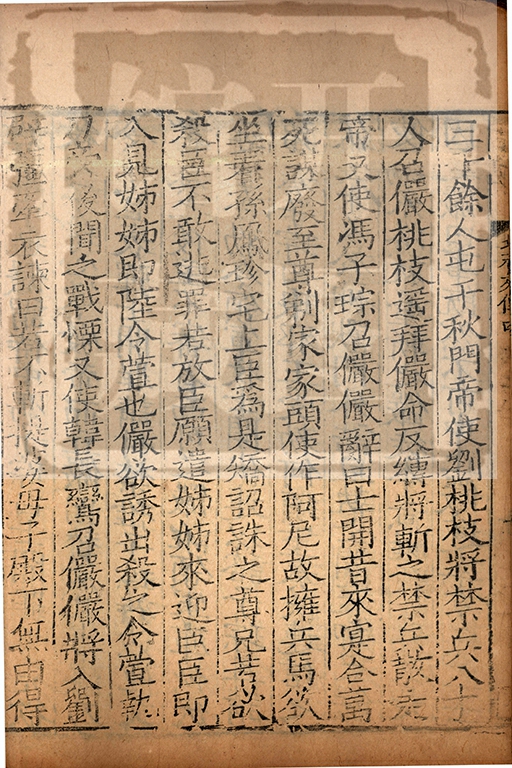 三千餘人屯千秋門帝使劉桃枝將禁兵八十
人召儼桃枝遥拜儼命反縛將斬之禁兵散走
帝又使馮子琮召儼儼辭曰士開昔來寔合萬
死謀廢至尊剃家家頭使作阿尼故擁兵馬欲
坐着孫鳳珍宅上臣爲是矯詔誅之尊兄若欲
殺臣不敢逃罪若放臣願遣姊姊來迎臣臣即
入見姊姊即陸令萱也儼欲誘出殺之令萱執
刀帝後聞之戰慄又使韓長鸞召儼儼將入劉
辟疆牽衣諫曰若不斬提婆母子殿下無由得